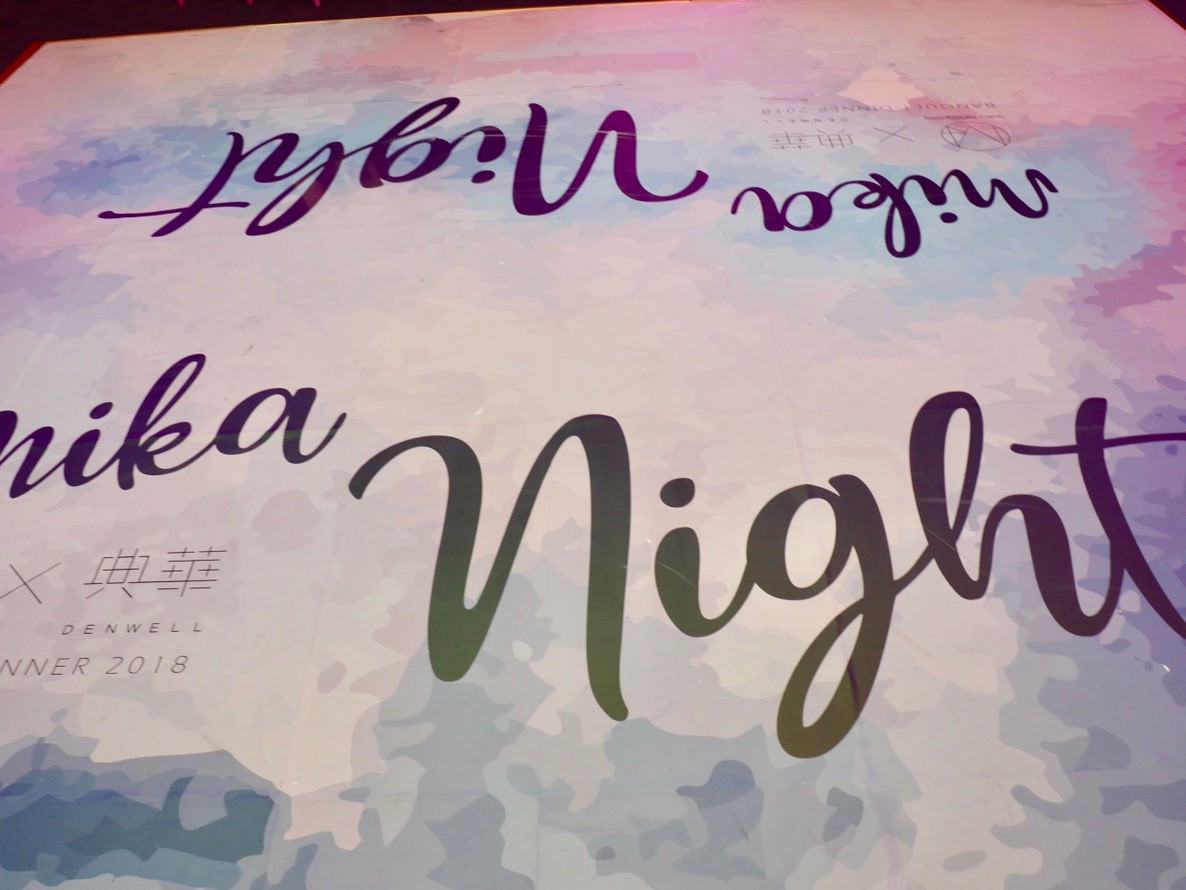 mika Night
× 典華
DENWELL
BANQUET DINNER 2018
mika Night
× 典華
DENWELL
NNER 2018